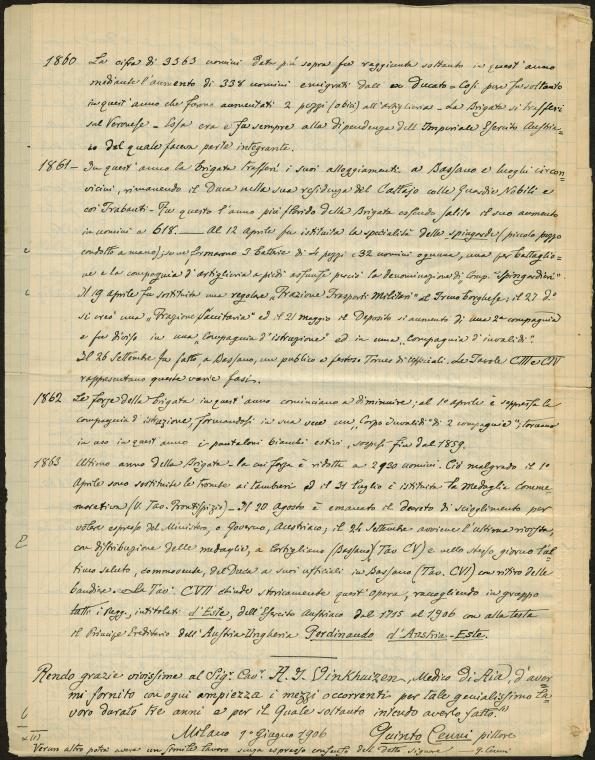 1860 La cifra di 3363 uomini data più sopra fu raggiunta soltanto in quest'anno
mediante l'aumento di 338 uomini emigrati dall'ex Ducato - Così pure fu soltanto
in quest'anno che furono aumentati 2 pezzi (obici) all'artiglieria - La Brigata si trasferì
sul Veronese - Essa era e fu sempre alla dipendenza dell'Imperiale Esercito Austria=
co del quale faceva parte integrante.
1861 - In quest'anno la brigata trasferì i suoi alloggiamenti a Bassano e luoghi circon=
vicini, rimanendo il Duca nella sua residenza del Cattajo colle Guardie Nobili e
coi Trabanti - Fu questo l'anno più florido della Brigata essendo salito il suo aumento
in uomini a 618. — Al 12 Aprile fu istituita la specialità delle spingarde (piccolo pezzo
condotto a mano); se ne formarono 3 batterie di 4 pezzi e 32 uomini ognuna, una per battaglio=
ne e la compagnia d'artiglieria a piedi assunse perciò la denominazione di Comp. "Spingardieri"
Il 19 aprile fu sostituita una regolare "Frazione Trasporti Militari" al Treno borghese; il 27 d.o
si creò una "Frazione Sanitaria" ed il 21 maggio il Deposito si aumentò di una 2a compagnia
e fu diviso in una "Compagnia d'istruzione" ed in una "Compagnia d'invalidi".
Il 26 Settembre fu fatto a Bassano, un pubblico e festoso Tiro degli Ufficiali. Le Tavole CIII e CIV
rappresentano queste varie fasi.
1862 Le forze della brigata in quest'anno cominciano a diminuire; al 1o aprile è soppressa la
compagnia d'istruzione, formandosi in sua vece un "Corpo d'invalidi" di 2 compagnie; tornano
in uso in quest'anno i pantaloni bianchi estivi, sospesi fin dal 1859.
1863 Ultimo anno della Brigata - la cui forza è ridotta a 2920 uomini. Ciò malgrado il 1o
Aprile sono sostituite le trombe ai tamburi ed il 31 luglio è istituita la Medaglia Comme=
morativa (V. Tav. Frontispizio) - Il 20 Agosto è emanato il decreto di scioglimento per
volere espresso del Ministro, o Governo, Austriaco; il 24 Settembre avviene l'ultima rivista,
con distribuzione delle medaglie, a Cartigliano (Bassano) (Tav CV) e nello stesso giorno l'ul=
timo saluto, commovente, del Duca a suoi ufficiali in Bassano (Tav. CVI) con ritiro delle
bandiere. La Tav. CVII chiude storicamente quest'Opera, raccogliendo in gruppo
tutti i Regg. intitolati d'Este, dell'Esercito Austriaco dal 1715 al 1906 con alla testa
il Principe Ereditario dell'Austria-Ungheria Ferdinando d'Austria-Este.
Rendo grazie vivissime al Sigr. Cav. H. J. Vinkhuizen, Medico di Aia, d'aver=
mi fornito con ogni ampiezza i mezzi occorrenti per tale genialissimo la=
voro durato tre anni e per il Quale soltanto intendo averlo fatto. (1)
Milano 1o Giugno 1906 Quinto Cenni pittore
(1) Verun altro potrà avere un simile lavoro senza espresso consenso del detto Signore — Q. Cenni